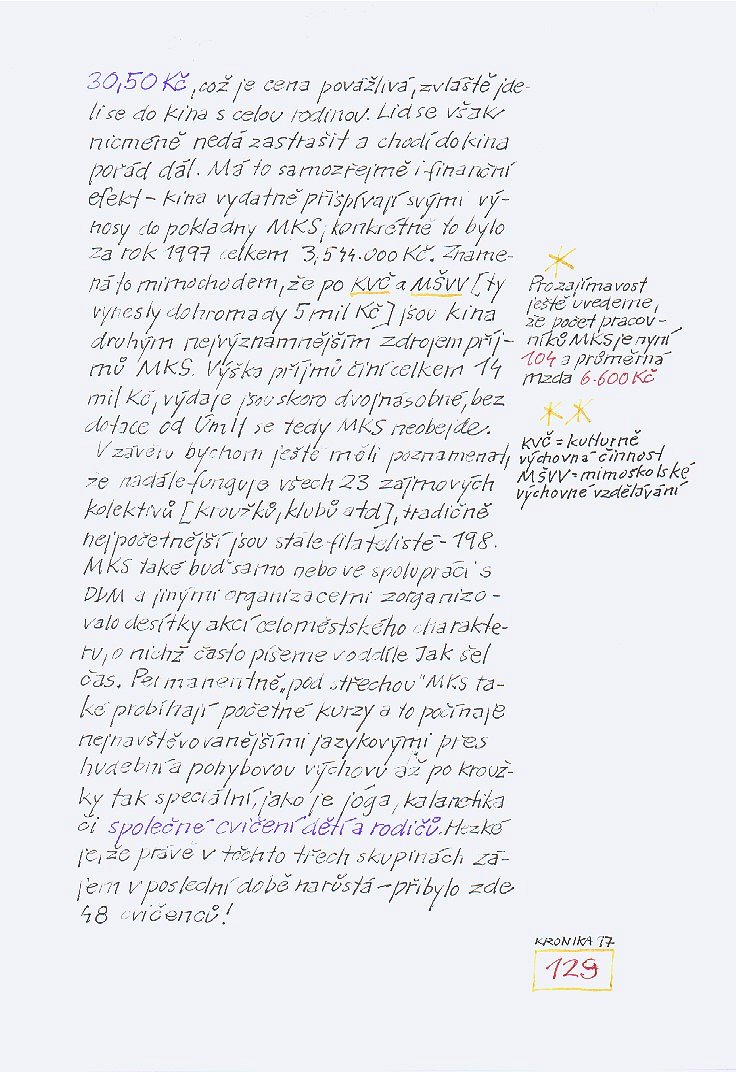 30,50 Kč, což je cena povážlivá, zvláště jde-
li se do kina s celou rodinou. Lid se však
nicméně nedá zastrašit a chodí do kina
pořád dál. Má to samozřejmě i finanční
efekt – kina vydatně přispívají svými vý-
nosy do pokladny MKS, konkrétně to bylo
za rok 1997 celkem 3,544.000 Kč. Zname-
ná to mimochodem, že po KVČ a MŠVV [ty
vynesly dohromady 5 mil Kč] jsou kina
druhým nejvýznamnějším zdrojem příj-
mů MKS. Výška příjmů činí celkem 14
mil Kč, výdaje jsou skoro dvojnásobné, bez
dotace od ÚmIt se tedy MKS neobejde.
V závěru bychom ještě měli poznamenat,
že nadále funguje všech 23 zájmových
kolektivů [kroužků, klubů atd], tradičně
nejpočetnější jsou stále filatelisté – 198.
MKS také buď samo nebo ve spolupráci s
DDM a jinými organizacemi zorganizo-
valo desítky akcí celoměstského charakte-
ru, o nichž často píšeme v oddíle Jak šel
čas. Permanentně „pod střechou" MKS ta-
ké probíhají početné kurzy a to počínaje
nejnavštěvovanějšími jazykovými přes
hudební a pohybovou výchovu až po krouž-
ky tak speciální, jako je jóga, kalanetika
či společné cvičení dětí a rodičů. Hezké
je, že právě v těchto třech skupinách zá-
jem v poslední době narůstá – přibylo zde
48 cvičenců!
Pro zajímavost
ještě uvedeme,
že počet pracov-
níků MKS je nyní
104 a průměrná
mzda 6.600 Kč
KVČ = kulturně
výchovná činnost
MŠVV = mimoškolské
výchovné vzdělávání
KRONIKA 97
129